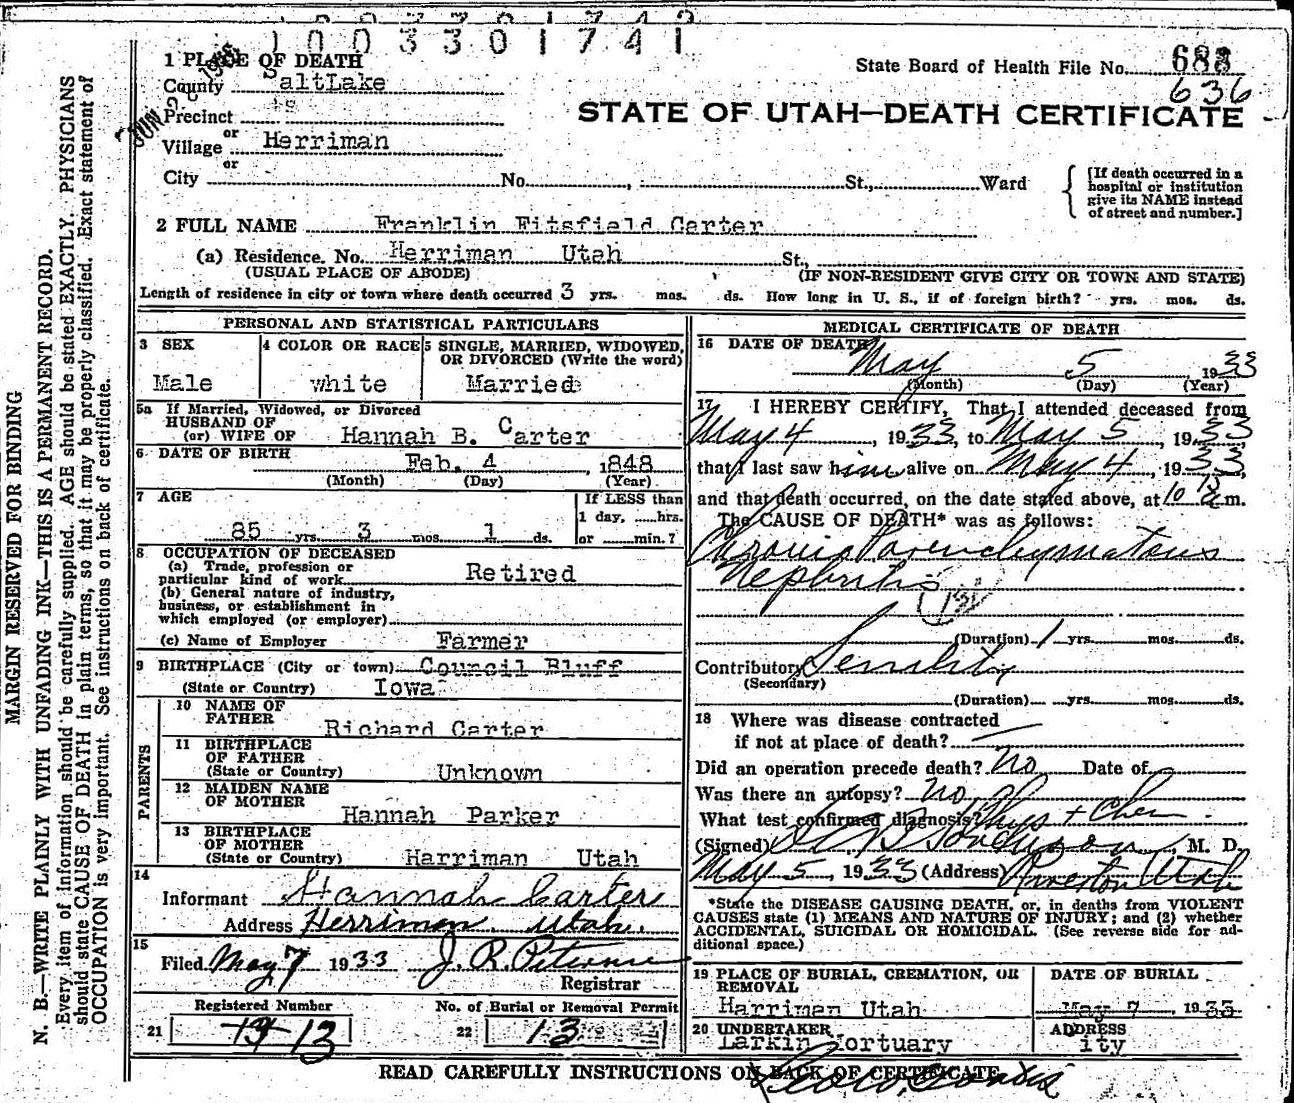 1003301741
1 PLACE OF DEATH
County SaltLake
State Board of Health File No. 683
636
Precinct
STATE OF UTAH—DEATH CERTIFICATE
or
Village Herriman
or
City No. , St., Ward
[If death occurred in a
hospital or institution
give its NAME instead
of street and number.]
2 FULL NAME Franklin Fitsfield Carter
(a) Residence. No. Herriman Utah St.,
(USUAL PLACE OF ABODE) (IF NON-RESIDENT GIVE CITY OR TOWN AND STATE)
Length of residence in city or town where death occurred 3 yrs. mos. ds. How long in U. S., if of foreign birth? yrs. mos. ds.
PERSONAL AND STATISTICAL PARTICULARS
3 SEX
Male
4 COLOR OR RACE
white
5 SINGLE, MARRIED, WIDOWED,
OR DIVORCED (Write the word)
Married
5a If Married, Widowed, or Divorced
HUSBAND OF
(or) WIFE OF Hannah B. Carter
6 DATE OF BIRTH Feb. 4, 1848
(Month) (Day) (Year)
7 AGE
85 yrs. 3 mos. 1 ds.
If LESS than
1 day, ......hrs.
or ......min.?
8 OCCUPATION OF DECEASED
(a) Trade, profession or
particular kind of work Retired
(b) General nature of industry,
business, or establishment in
which employed (or employer)
(c) Name of Employer Farmer
9 BIRTHPLACE (City or town) Council Bluff
(State or Country) Iowa
PARENTS
10 NAME OF
FATHER Richard Carter
11 BIRTHPLACE
OF FATHER
(State or Country) Unknown
12 MAIDEN NAME
OF MOTHER Hannah Parker
13 BIRTHPLACE
OF MOTHER
(State or Country) Harriman Utah
14
Informant Hannah Carter
Address Herriman, Utah.
15
Filed May 7 1933 J. R. Peterson
Registrar
Registered Number No. of Burial or Removal Permit
21 13 22 13
MEDICAL CERTIFICATE OF DEATH
16 DATE OF DEATH
May 5 1933
(Month) (Day) (Year)
17 I HEREBY CERTIFY, That I attended deceased from
May 4, 1933, to May 5, 1933,
that I last saw him alive on May 4, 1933,
and that death occurred, on the date stated above, at 10 m.
The CAUSE OF DEATH* was as follows:
Chronic Parenchymatous
Nephritis
131
(Duration) 1 yrs. mos. ds.
Contributory Senility
(Secondary)
(Duration) yrs. mos. ds.
18 Where was disease contracted
if not at place of death? —
Did an operation precede death? No Date of
Was there an autopsy? No
What test confirmed diagnosis? Phys + Chem.
(Signed) , M. D.
May 5, 1933 (Address) Riverton Utah
*State the DISEASE CAUSING DEATH, or, in deaths from VIOLENT
CAUSES state (1) MEANS AND NATURE OF INJURY; and (2) whether
ACCIDENTAL, SUICIDAL OR HOMICIDAL. (See reverse side for ad-
ditional space.)
19 PLACE OF BURIAL, CREMATION, OR
REMOVAL
Harriman Utah
DATE OF BURIAL
May 7, 1933
20 UNDERTAKER
Larkin Mortuary
ADDRESS
ity
READ CAREFULLY INSTRUCTIONS ON BACK OF CERTIFICATE
MARGIN RESERVED FOR BINDING
N. B.—WRITE PLAINLY WITH UNFADING INK—THIS IS A PERMANENT RECORD.
Every item of information should be carefully supplied. AGE should be stated EXACTLY. PHYSICIANS
should state CAUSE OF DEATH in plain terms, so that it may be properly classified. Exact statement of
OCCUPATION is very important. See instructions on back of certificate.